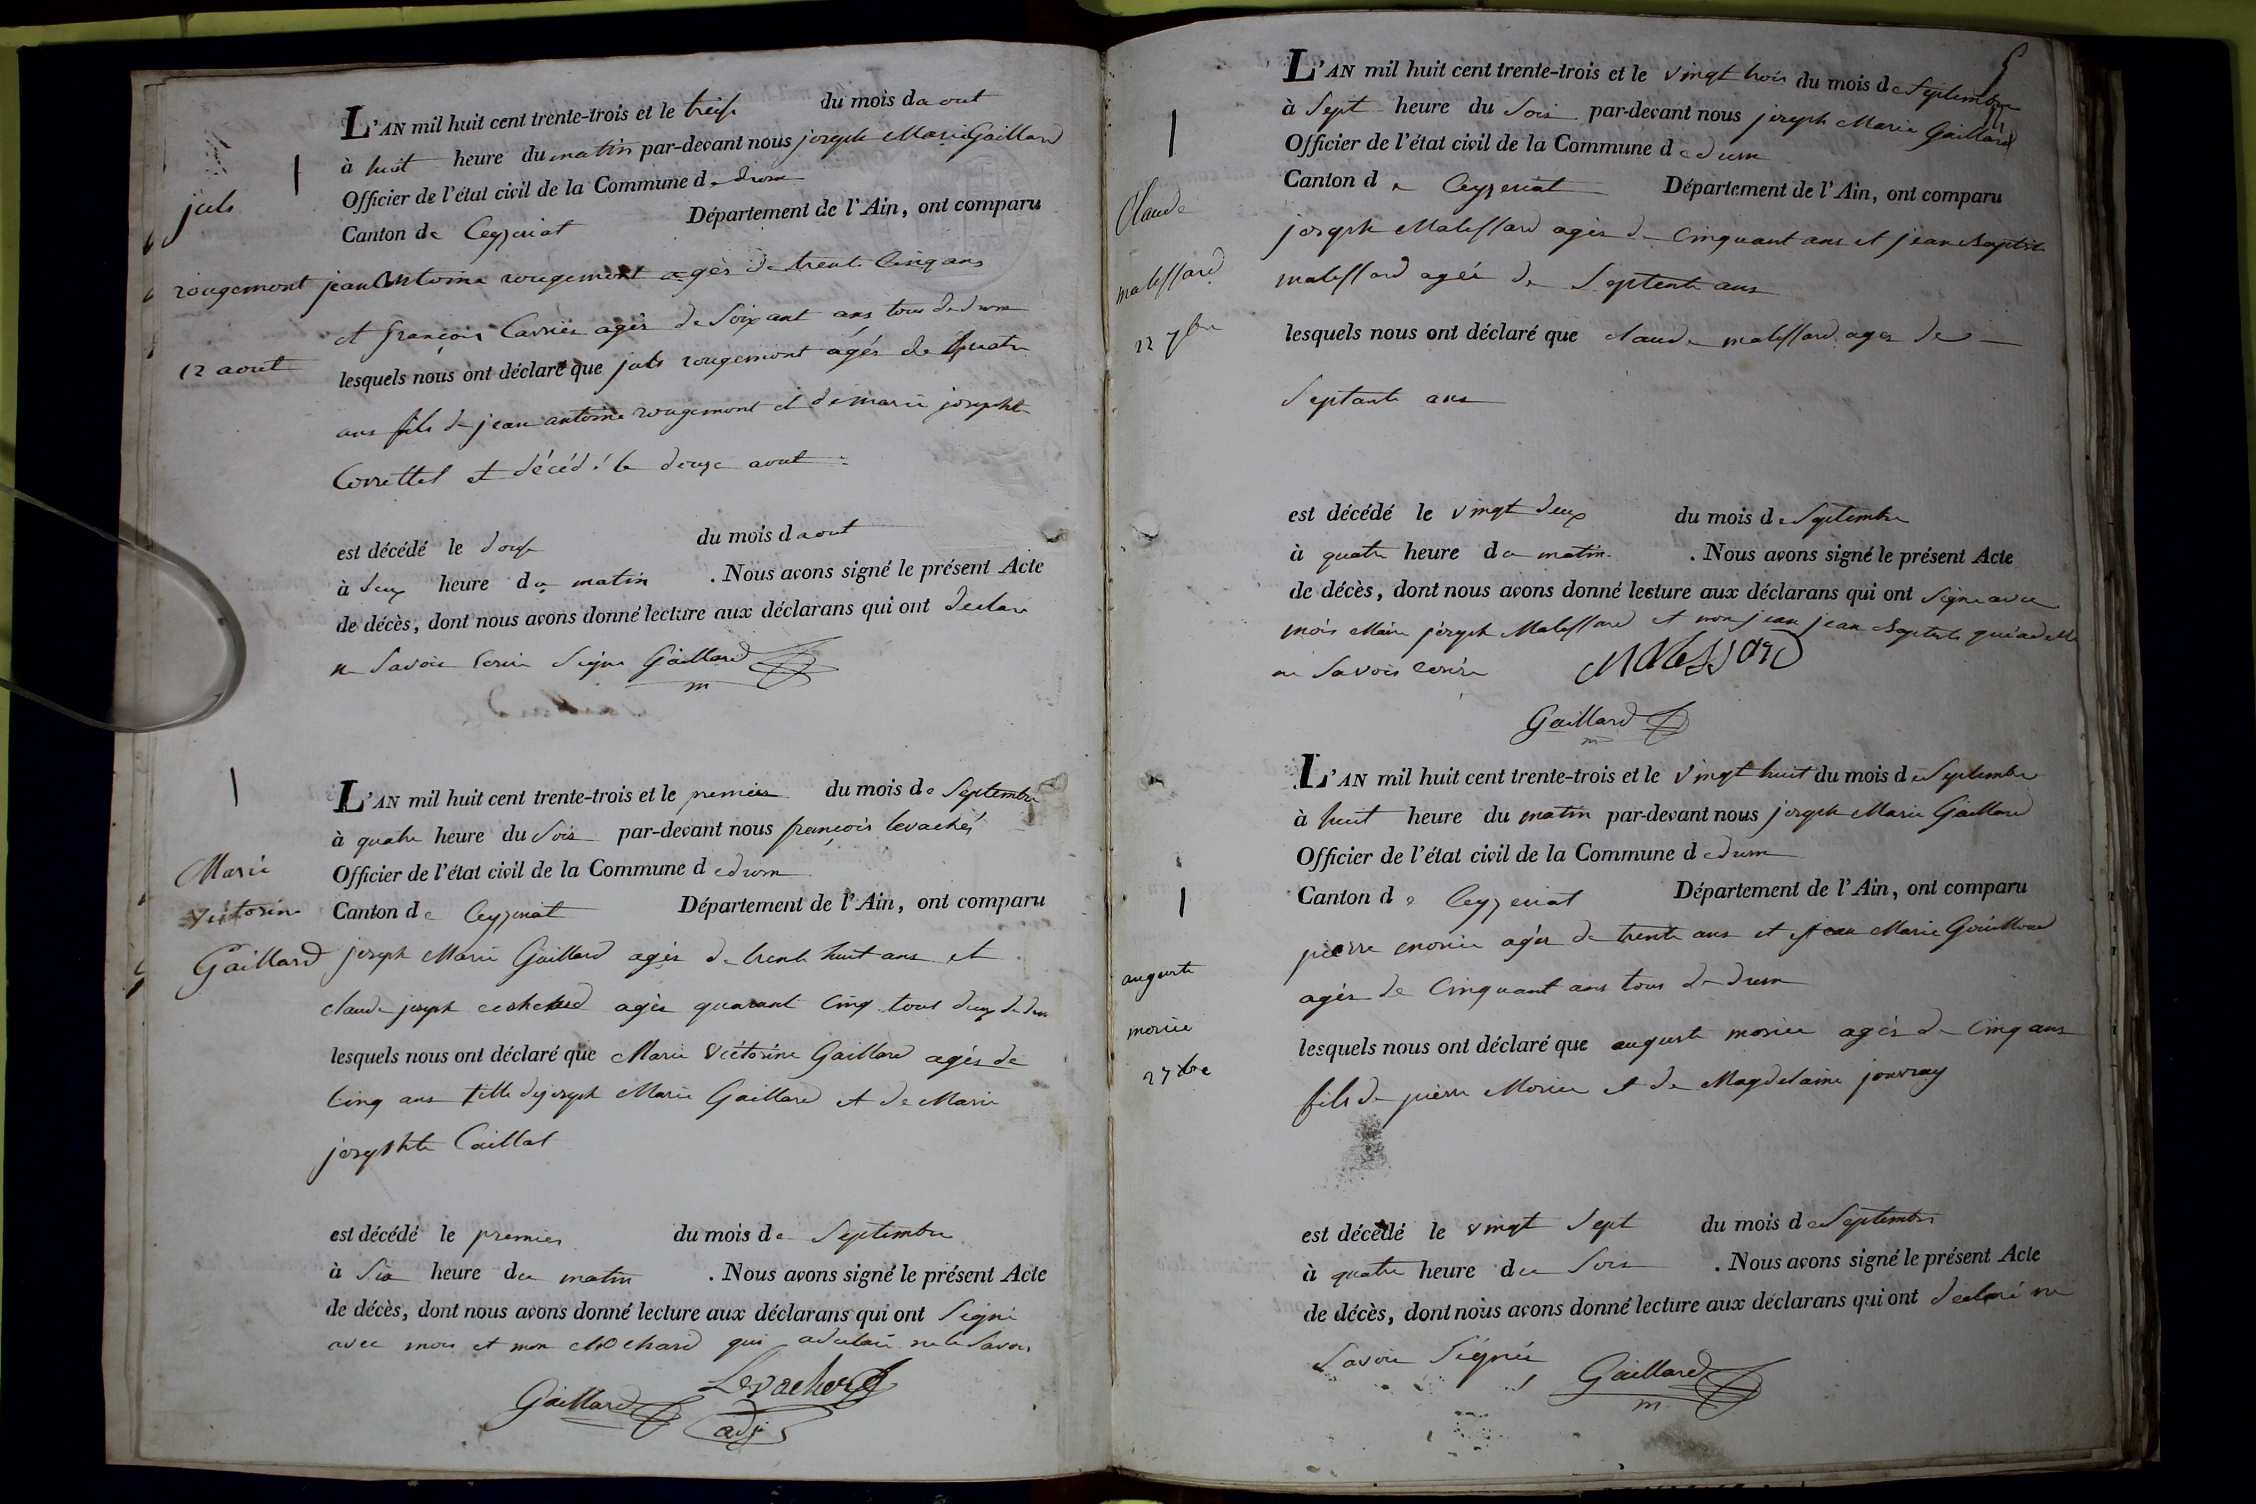 L'AN mil huit cent trente-trois et le treise du mois daout
à huit heure du matin par-devant nous joseph Marie Gaillard
Officier de l'état civil de la Commune de drom
Canton de Ceyzeriat Département de l'Ain, ont comparu
jean Antoine rougemont agés de trente Cinq ans
et françois Carrier agés de Soixant ans tous de drom
lesquels nous ont déclaré que juls rougemont agés de quatre
ans fils de jean antoine rougemont et de marie josephte
et décédé le douze aout
est décédé le douse du mois daout
à deux heure du matin . Nous avons signé le présent Acte
de décès, dont nous avons donné lecture aux déclarans qui ont declare
ne Savoir Signe Gaillard
m
juls
rougemont
12 aout
L'AN mil huit cent trente-trois et le premier du mois de Septembre
à quatre heure du Soir par-devant nous françois levachés
Officier de l'état civil de la Commune de drom
Canton de Ceyzeriat Département de l'Ain, ont comparu
joseph Marie Gaillard agés de trente huit ans et
claude joseph agés quarant Cinq tout deux de
lesquels nous ont déclaré que Marie Victorine Gaillard agés de
Cinq ans fille de joseph Marie Gaillard et de Marie
josephte Caillat
est décédé le premier du mois de Septembre
à Six heure du matin . Nous avons signé le présent Acte
de décès, dont nous avons donné lecture aux déclarans qui ont Signé
avec mois et non chochard qui ne le Savoir
Gaillard
adj
Marie
Victorine
Gaillard
5
L'AN mil huit cent trente-trois et le vingt trois du mois de Septembre
à Sept heure du Soir par-devant nous joseph Marie Gaillard
Officier de l'état civil de la Commune de drom
Canton de Ceyzeriat Département de l'Ain, ont comparu
joseph Malessard agés de Cinquant ans et jean baptiste
malessard agés de Septente ans
lesquels nous ont déclaré que claude malessard ages de
Septante ans
est décédé le vingt deux du mois de Septembre
à quatre heure du matin . Nous avons signé le présent Acte
de décès, dont nous avons donné lecture aux déclarans qui ont Signe avec
mois Maire joseph Malessard et non jean jean baptiste qui a
ne Savoir ecrire Malessard
Gaillard
m
Claude
malessard
22 7bre
L'AN mil huit cent trente-trois et le vingt huit du mois de Septembre
à huit heure du matin par-devant nous joseph Marie Gaillard
Officier de l'état civil de la Commune de drom
Canton de Ceyzeriat Département de l'Ain, ont comparu
pierre morier agés de trente ans et jean Marie
agés de Cinquant ans tous de drom
lesquels nous ont déclaré que auguste morier agés de Cinq ans
fils de pierre Morier et de Magdelaine jouvray
est décédé le vingt Sept du mois de Septembre
à quatre heure du Soir . Nous avons signé le présent Acte
de décès, dont nous avons donné lecture aux déclarans qui ont declaré ne
Savoir Signée Gaillard
m
auguste
morier